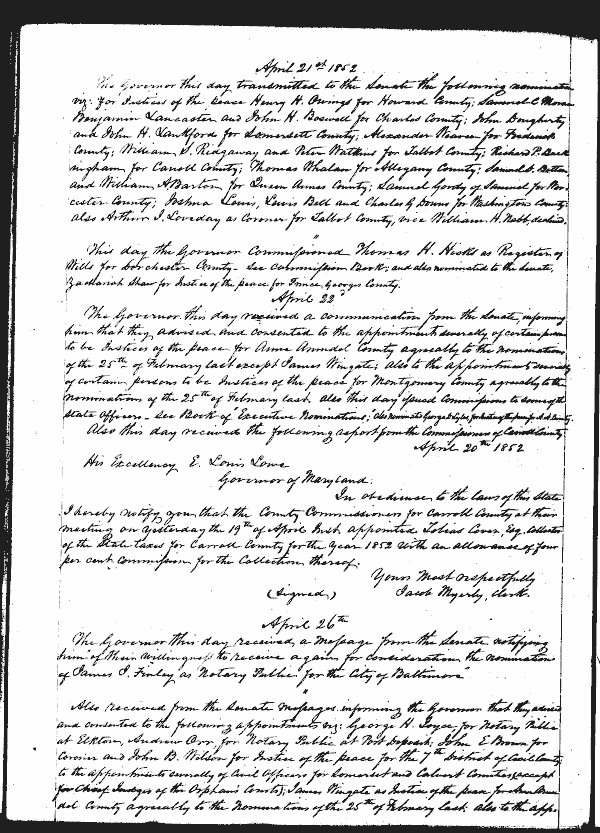 April 21st 1852
The Governor this day transmitted to the Senate the following nominations
viz: For Justices of the peace Henry H. Owings for Howard County; Samuel C Moran
Benjamin Lancaster and John H. Boswell for Charles County; John Dougherty
and John H. Lankford for Somersett County; Alexander Pearce for Frederick
County; William S. Ridgaway and Peter Watkins for Talbot County; Richard P. Buck
ingham for Caroll County; Thomas Whalan for Allegany County; Samuel D. Betton
and William A Barton for Queen Annes County; Samuel Gordy of Samuel for Wor
cester County; Joshua Lewis, Lewis Bell and Charles G Downs for Washington County
also Arthur J. Loveday as Coroner for Talbot County, vice William H. Nabb, declind.
"
This day the Governor Commissioned Thomas H. Hicks as Register of
Wills for Dorchester County - See Commission Book; and also nominated to the Senate,
Zachariah Shaw for Justice of the peace for Prince Georges County.
April 22d
The Governor this day received a communication from the Senate, informing
him that they advised and consented to the appointment severally of certain persons
to be Justices of the peace for Anne Arundel County agreeably to the nominations
of the 25th of February last except James Wingate; also to the appointment severally
of certain persons to be Justices of the peace for Montgomery County agreeably to the
nominations of the 25th of February last. also this day issued Commissions to some of the
State Officers - See Book of "Executive Nominations;"
Also this day received the following report from the Commissioners of Carroll County
April 20th 1852
His Excellency E. Louis Lowe
Governor of Maryland.
In obedience to the laws of this State
I hereby notify you that the County Commissioners for Carroll County at their
meeting on yesterday the 19th of April Inst. appointed Tobias Cover, Esq. Collector
of the State taxes for Carroll County for the Year 1852 with an allowance of four
per cent. Commission for the Collection thereof.
Yours Most respectfully
(Signed,) Jacob Myerly, clerk.
April 26th
The Governor this day received a message from the Senate notifying
him of their willingness to receive again for consideration the nomination
of James J. Finley as Notary Public for the City of Baltimore
"
Also received from the Senate Messages informing the Governor that they advised
and consented to the following appointments viz: George H. Joyce for Notary Public
at Elkton, Andrew Orr for Notary Public at Port Deposit; John E Brown for
Coronor and John B. Wilson for Justice of the peace for the 7th District of Cecil County
to the appointments severally of Civil Officers for Somerset and Calvert Counties (except
for Chief Judges of the Orphans Courts); James Wingate as Justice of the peace for Ann Arun
del County agreeably to the Nominations of the 25th of February last. also to the appo